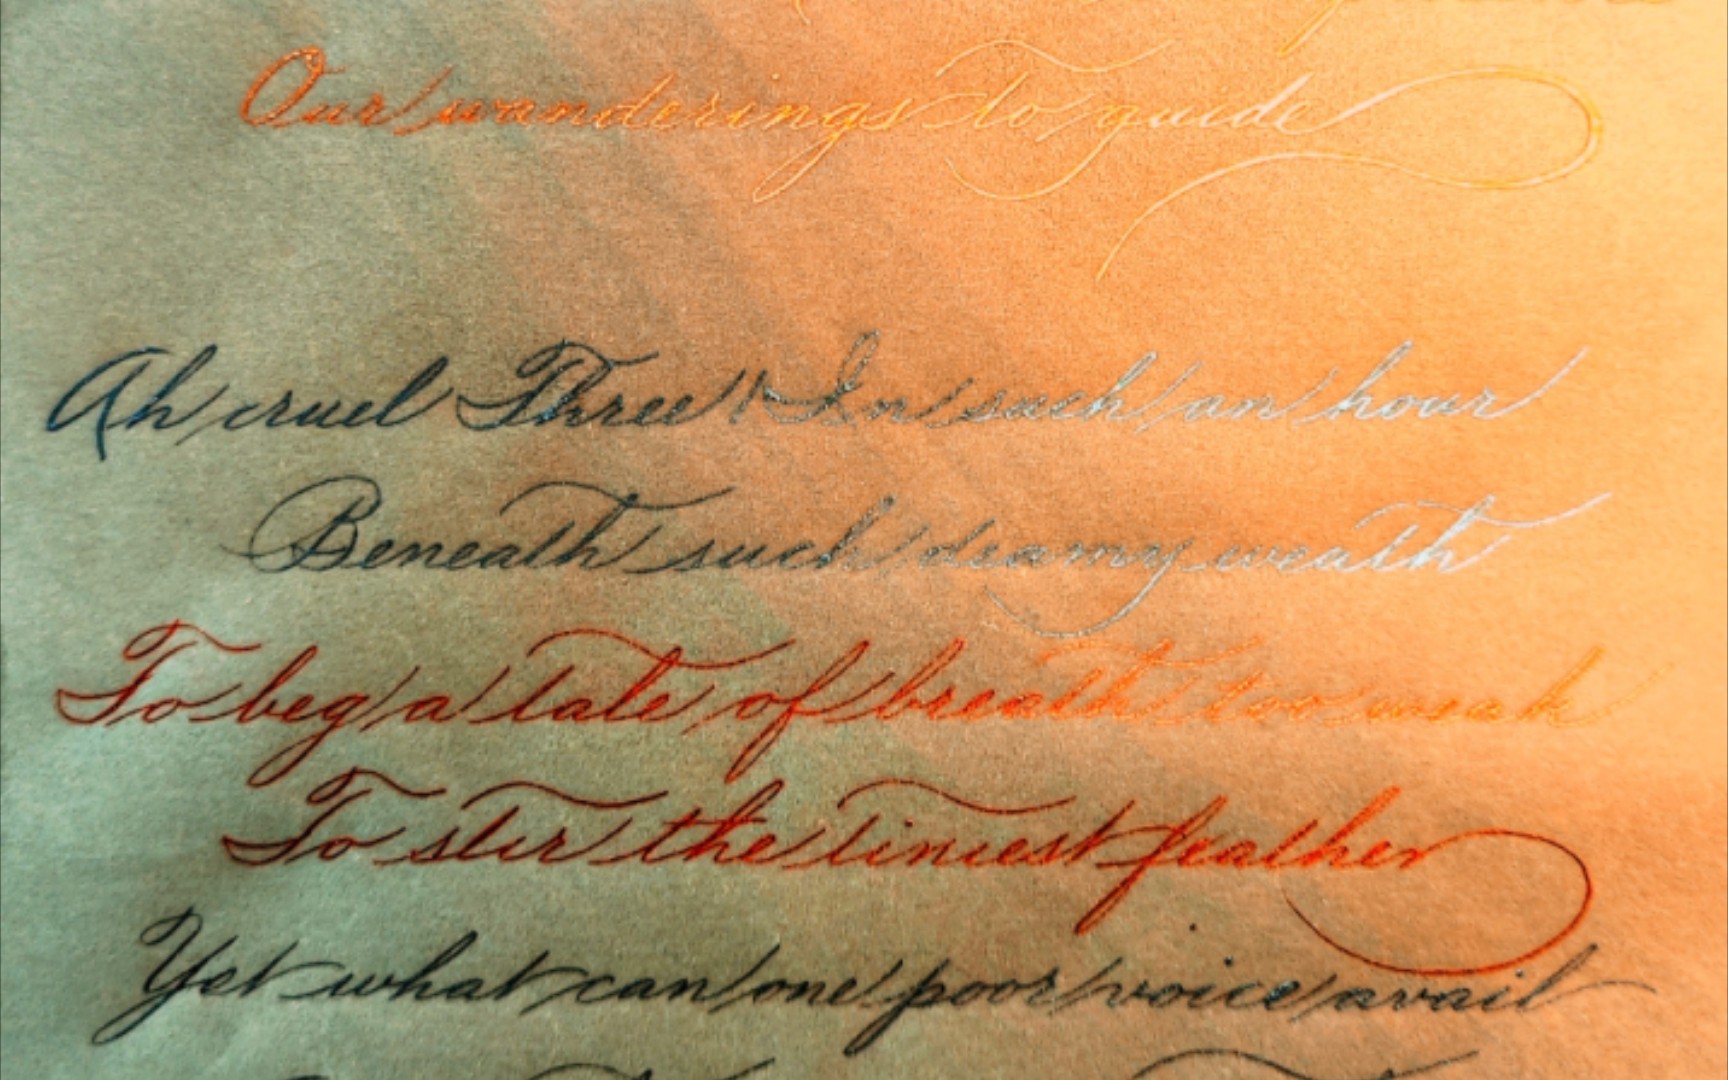 Our wanderings to guide
Ah cruel Three! In such an hour
Beneath such deamy weath
To beg a tale of breath too weak
To stir the tiniest feather
Yet what can one poor voice avail